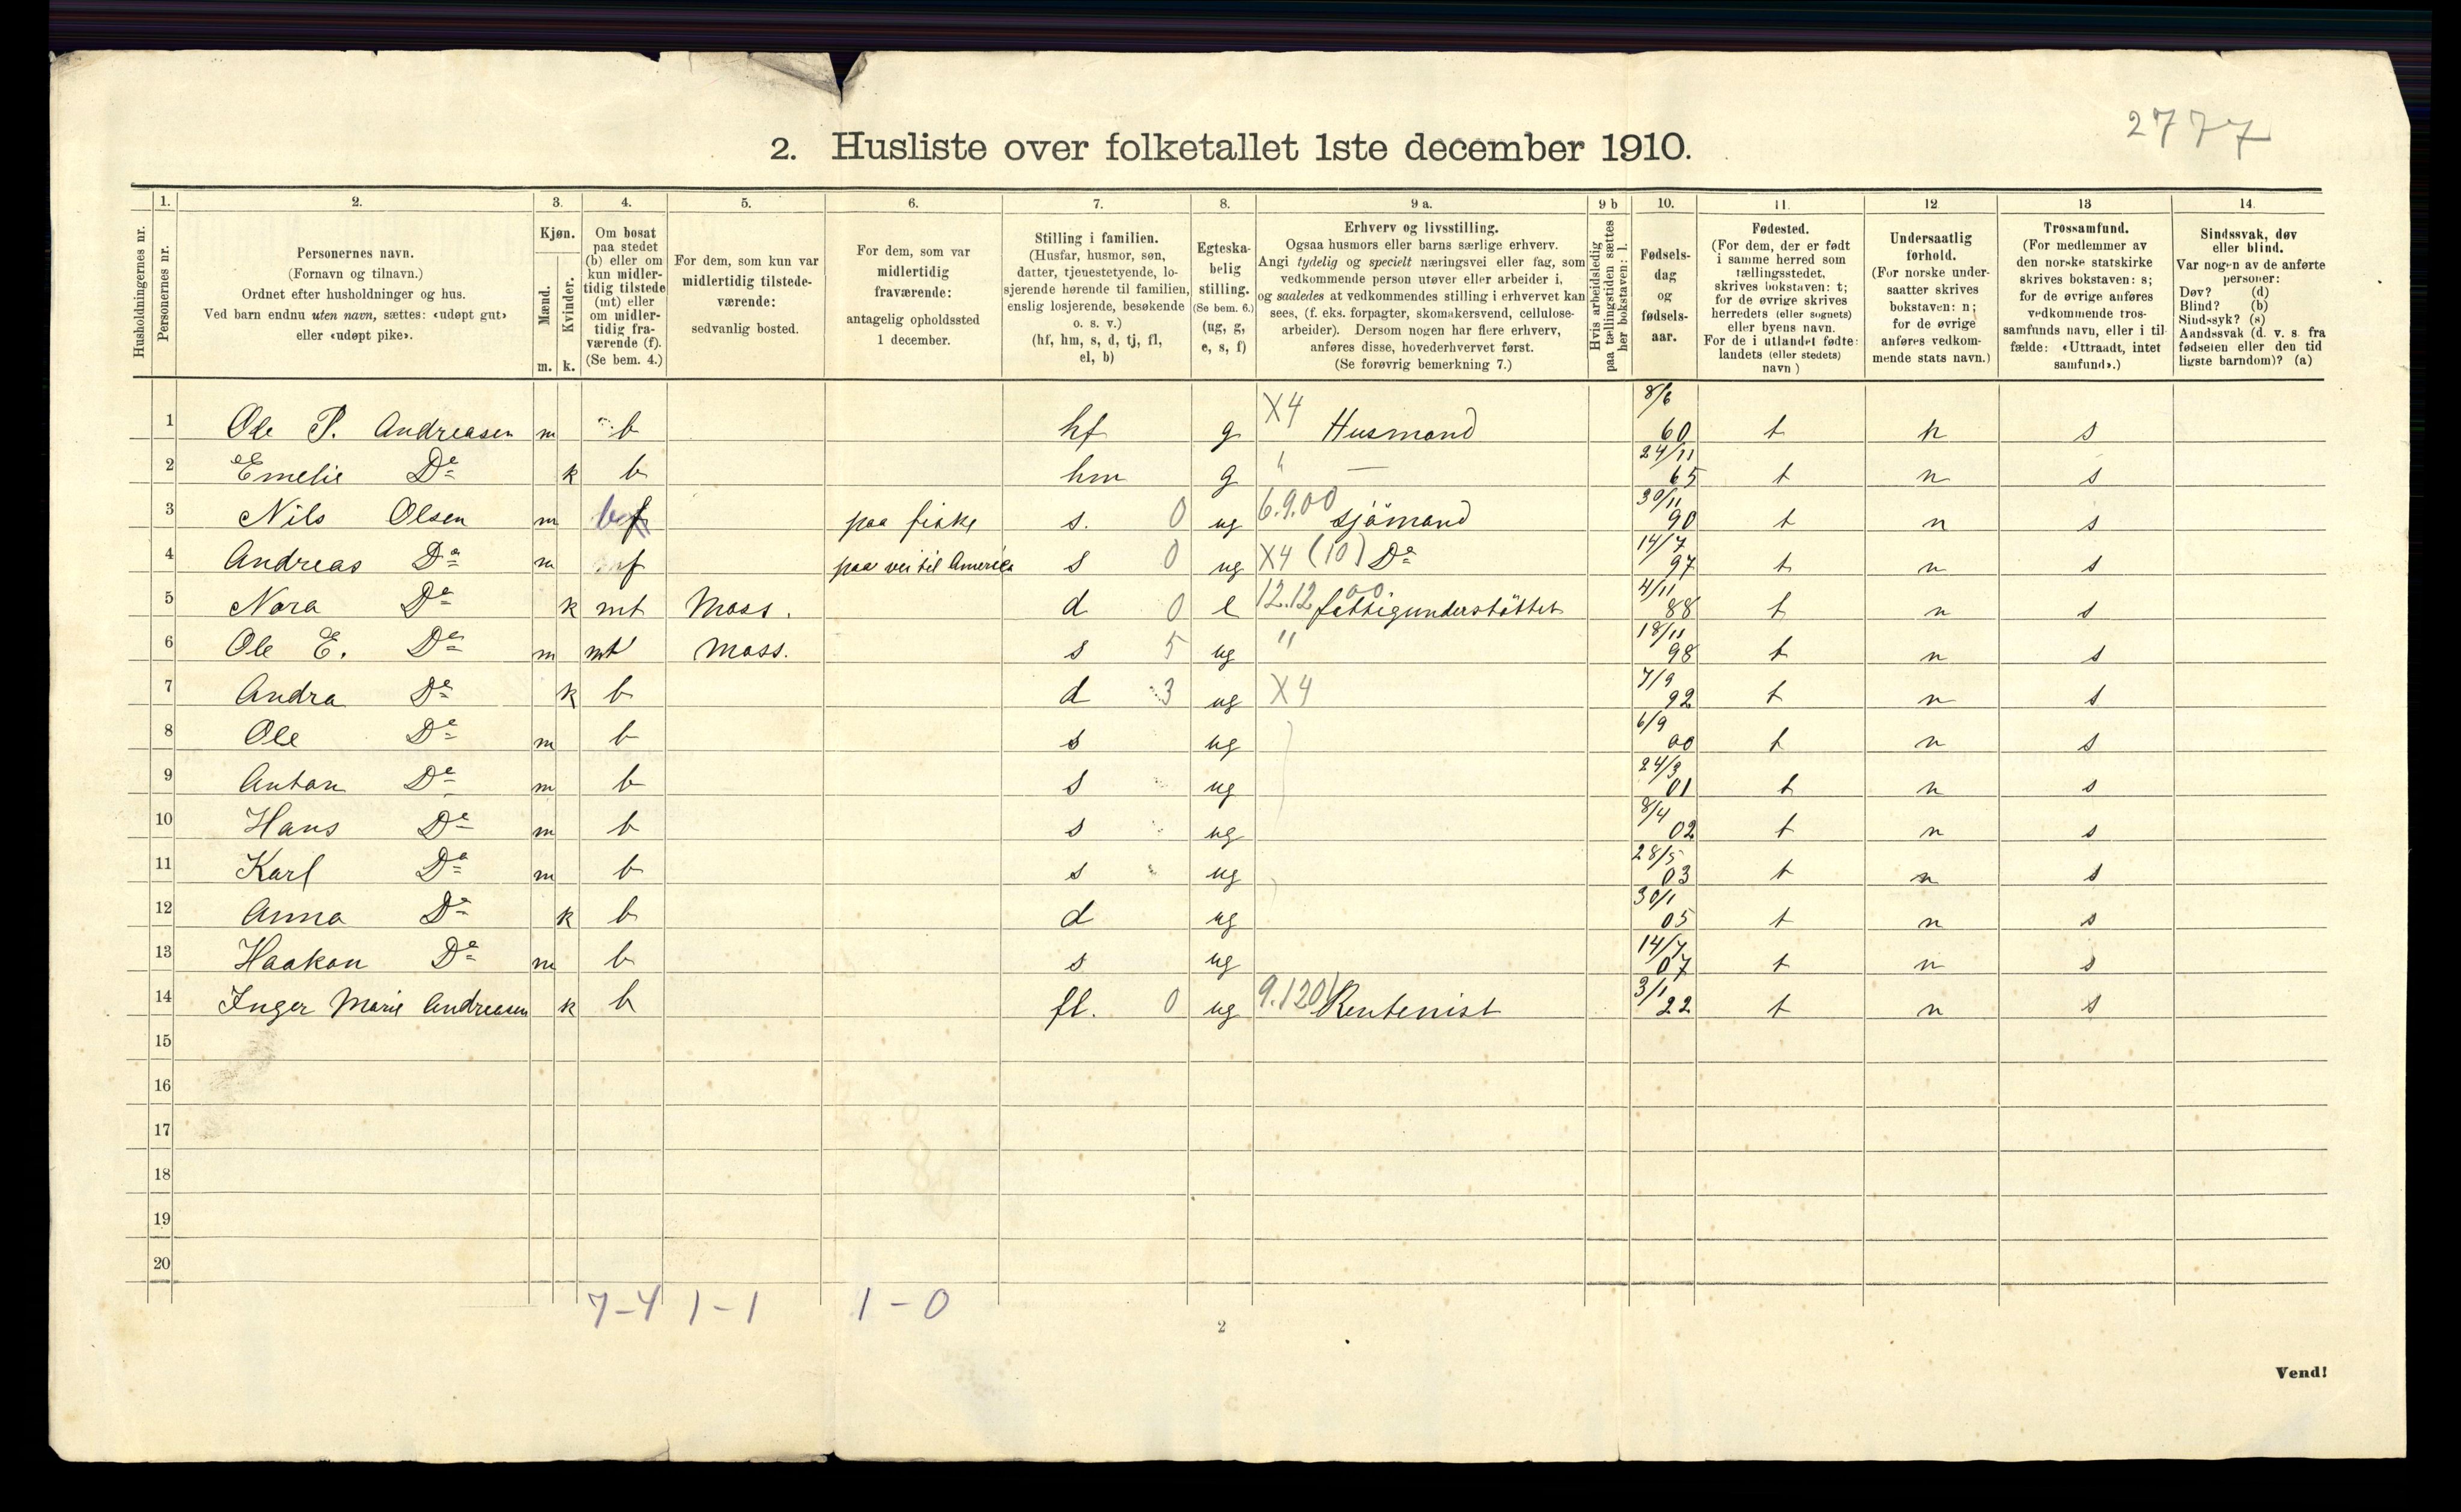 2777
2. Husliste over folketallet 1ste december 1910.
Husholdningernes nr.
1. Personernes nr.
2. Personernes navn.
(Fornavn og tilnavn.)
Ordnet efter husholdninger og hus.
Ved barn endnu uten navn, sættes: «udøpt gut»
eller «udøpt pike».
3. Kjøn.
Mænd. m.
Kvinder. k.
4. Om bosat
paa stedet
(b) eller om
kun midler-
tidig tilstede
(mt) eller
om midler-
tidig fra-
værende (f).
(Se bem. 4.)
5. For dem, som kun var
midlertidig tilstede-
værende:
sedvanlig bosted.
6. For dem, som var
midlertidig
fraværende:
antagelig opholdssted
1 december.
7. Stilling i familien.
(Husfar, husmor, søn,
datter, tjenestetyende, lo-
sjerende hørende til familien,
enslig losjerende, besøkende
o. s. v.)
(hf, hm, s, d, tj, fl,
el, b)
8. Egteska-
belig
stilling.
(Se bem. 6.)
(ug, g,
e, s, f)
9 a. Erhverv og livsstilling.
Ogsaa husmors eller barns særlige erhverv.
Angi tydelig og specielt næringsvei eller fag, som
vedkommende person utøver eller arbeider i,
og saaledes at vedkommendes stilling i erhvervet kan
sees, (f. eks. forpagter, skomakersvend, cellulose-
arbeider). Dersom nogen har flere erhverv,
anføres disse, hovederhvervet først.
(Se forøvrig bemerkning 7.)
9 b Hvis arbeidsledig
paa tællingstiden sættes
her bokstaven: l.
10. Fødsels-
dag
og
fødsels-
aar.
11. Fødested.
(For dem, der er født
i samme herred som
tællingsstedet,
skrives bokstaven: t;
for de øvrige skrives
herredets (eller sognets)
eller byens navn.
For de i utlandet fødte:
landets (eller stedets)
navn )
12. Undersaatlig
forhold.
(For norske under-
saatter skrives
bokstaven: n;
for de øvrige
anføres vedkom-
mende stats navn.)
13 Trossamfund.
(For medlemmer av
den norske statskirke
skrives bokstaven: s;
for de øvrige anføres
vedkommende tros-
samfunds navn, eller i til-
fælde: «Uttraadt, intet
samfund».)
14. Sindssvak, døv
eller blind.
Var nogen av de anførte
personer:
Døv? (d)
Blind? (b)
Sindssyk? (s)
Aandssvak (d. v. s. fra
fødselen eller den tid
ligste barndom)? (a)
1 Ole P. Andreasen m b hf g X4 Husmand 8/6 60 t n s
2 Emelie Do k b hm g " — 24/11 65 t n s
3 Nils Olsen m b f paa fiske s. 0 ug 6.9.00 sjömand 30/11 90 t n s
4 Andreas Do m f paa vei til Amerika s 0 ug X4 (10) Do 14/7 97 t n s
5 Nora Do k mt Moss. d 0 e 12.12 00 fattigunderstöttet 4/11 88 t n s
6 Ole E. Do m mt Moss. s 5 ug " 18/11 98 t n s
7 Andra Do k b d 3 ug X4 7/9 92 t n s
8 Ole Do m b s ug 6/9 00 t n s
9 Anton Do m b s ug 24/3 01 t n s
10 Hans Do m b s ug 8/4 02 t n s
11 Karl Do m b s ug 28/5 03 t n s
12 Anna Do k b d ug 30/1 05 t n s
13 Haakon Do m b s ug 14/7 07 t n s
14 Inger Marie Andreasen k b fl. 0 ug 9.120 Rentenist 3/1 22 t n s
15
16
17
18
19
20
7-4 1-1 1-0
2
Vend!